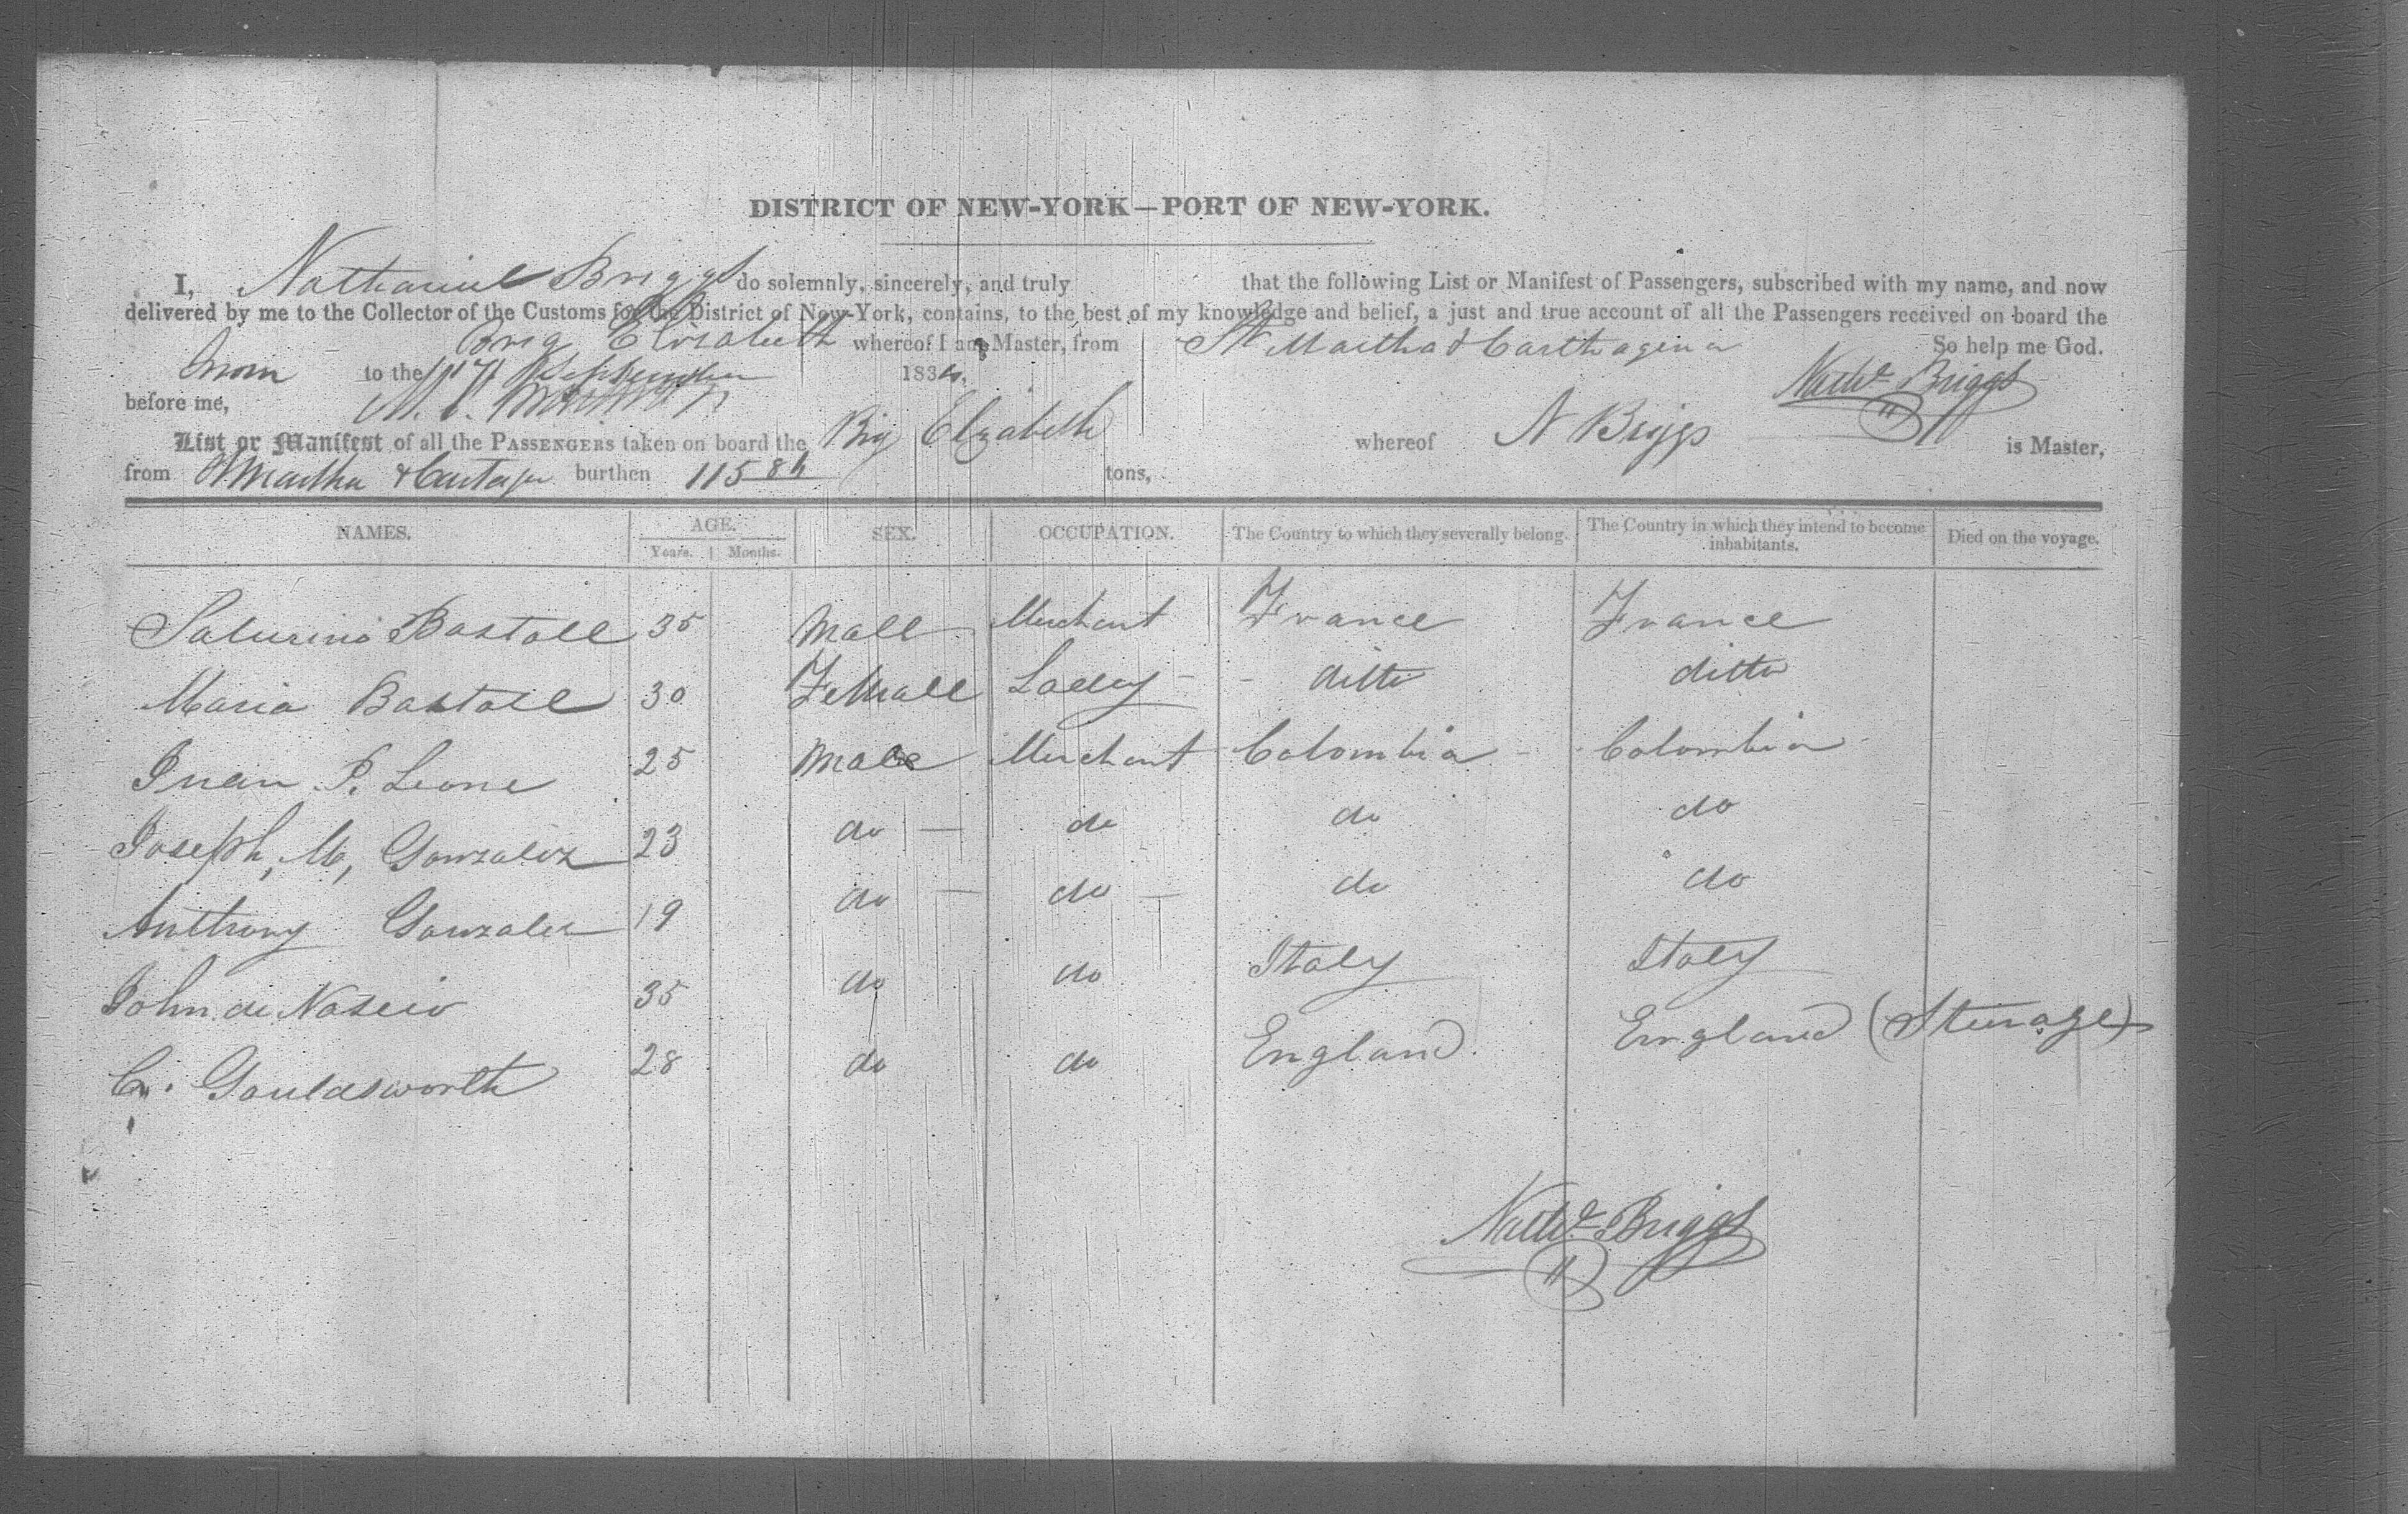 DISTRICT OF NEW-YORK—PORT OF NEW-YORK.
I, Nathaniel Briggs do solemnly, sincerely, and truly that the following List or Manifest of Passengers, subscribed with my name, and now
delivered by me to the Collector of the Customs for the District of New-York, contains, to the best of my knowledge and belief, a just and true account of all the Passengers received on board the
Brig Elizabeth whereof I am Master, from St Martha & Carthagena So help me God.
Sworn to the 17 September 1834. Nathl Briggs
before me,
List or Manifest of all the PASSENGERS taken on board the Brig Elizabeth whereof N Briggs is Master,
from St Martha & burthen 115 tons,
NAMES. AGE. SEX. OCCUPATION. The Country to which they severally belong. The Country in which they intend to become inhabitants. Died on the voyage.
Years. Months.
Saturino Bastall 35 Male Merchant France France
Maria Bastall 30 Female Lady ditto ditto
Juan P. Leone 25 Male Merchant Colombia Colombia
Joseph, M, Gonzalez 23 do do do do
Anthony Gonzalez 19 do do do do
John de 35 do do Italy Italy
Gouldsworth 28 do do England England (Steerage)
Nathl Briggs